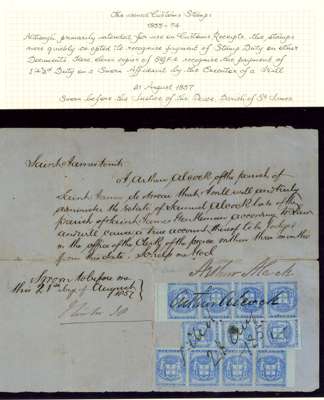 The unused Customs Stamps
1855-74
Although primarily intended for use on Customs Receipts, the stamps
were quickly co-opted to recognise payment of Stamp Duty on other
Documents. Here nine copies of recognise the payment of
Duty on a Sworn Affidavit by the Executor of a Will
21 August 1857
Sworn before the Justice of the Peace, Parish of St James
Saint James
I Arthur Alcock of the parish of
Saint James do swear that I will well and truly
administer the Estate of Samuel Alcock late of the
parish of Saint James Gentleman according to Law
and will cause a true account thereof to be lodged
in the office of the Clerk of the within three months
from this date. So help me God
Arthur Alcock
Sworn to before me
this 21st day of August
1857
Arthur Alcock
21 Aug
1857